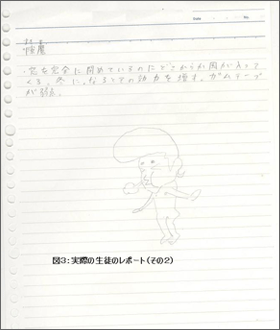 Date
すき ま
隙魔
・窓を完全に閉めているのにどこからか風が入って
くる。冬になるとその効力を増す。ガムテープ
が弱点。
図3:実際の生徒のレポート(その2)